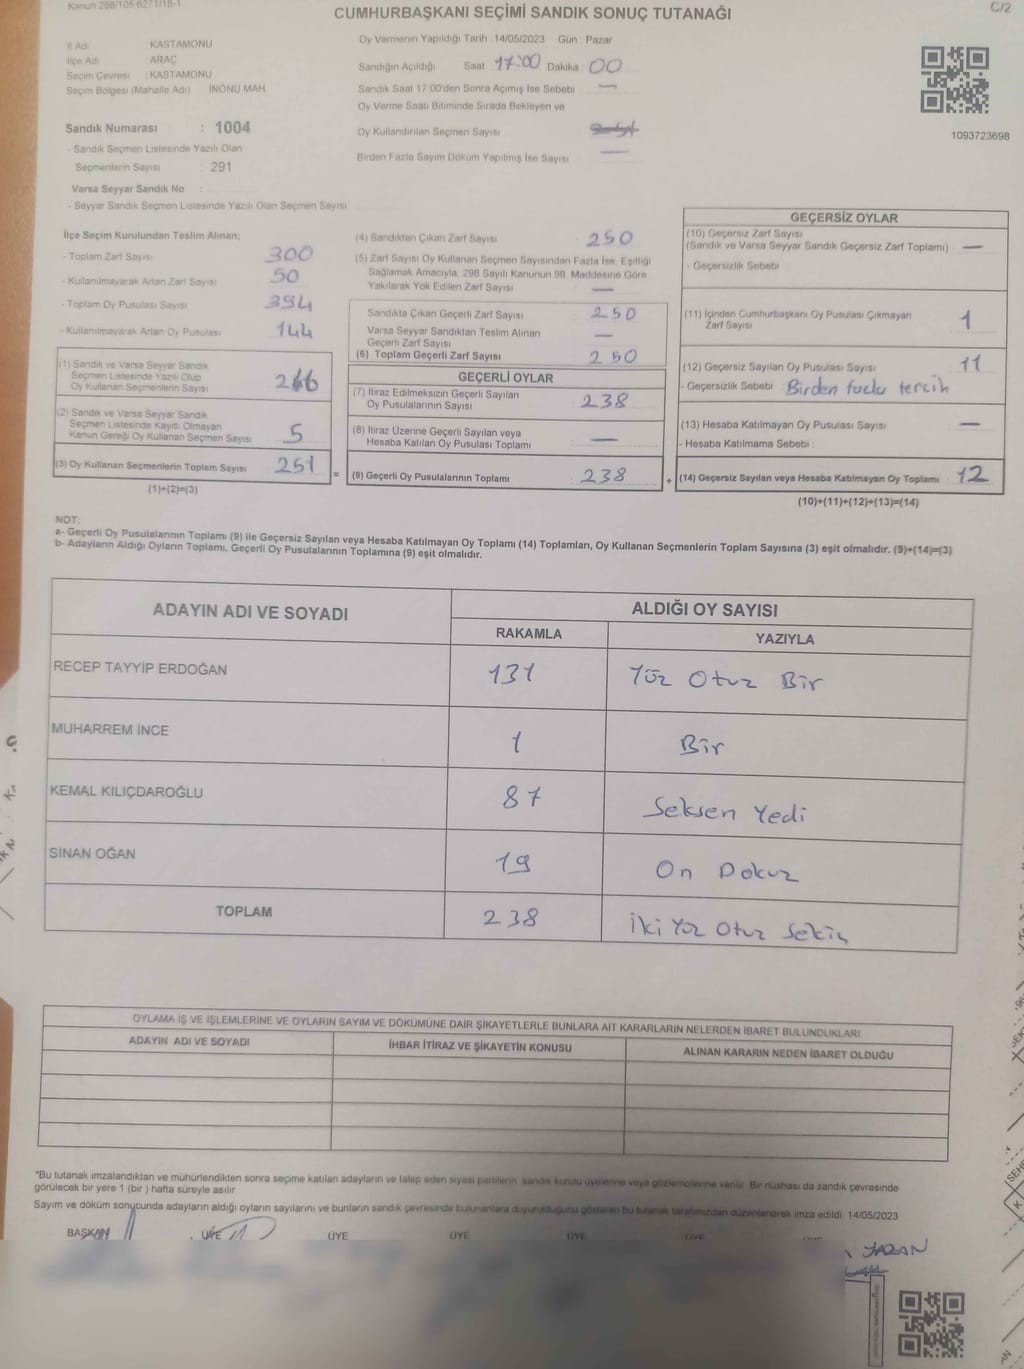 Kanun:298/105.6271/18-1
C/2
CUMHURBAŞKANI SEÇİMİ SANDIK SONUÇ TUTANAĞI
İl Adı KASTAMONU
İlçe Adı ARAÇ
Seçim Çevresi : KASTAMONU
Seçim Bölgesi (Mahalle Adı) İNÖNÜ MAH.
Sandık Numarası : 1004
- Sandık Seçmen Listesinde Yazılı Olan
Seçmenlerin Sayısı : 291
Varsa Seyyar Sandık No :
- Seyyar Sandık Seçmen Listesinde Yazılı Olan Seçmen Sayısı
Oy Vermenin Yapıldığı Tarih : 14/05/2023 Gün : Pazar
Sandığın Açıldığı Saat : 17:00 Dakika : 00
Sandık Saat 17.00'den Sonra Açımış İse Sebebi —
Oy Verme Saati Bitiminde Sırada Bekleyen ve
Oy Kullandırılan Seçmen Sayısı
Birden Fazla Sayım Döküm Yapılmış İse Sayısı —
1093723698
İlçe Seçim Kurulundan Teslim Alınan;
- Toplam Zarf Sayısı 300
- Kullanılmayarak Artan Zarf Sayısı 50
- Toplam Oy Pusulası Sayısı 394
- Kullanılmayarak Artan Oy Pusulası 144
(1) Sandık ve Varsa Seyyar Sandık
Seçmen Listesinde Yazılı Olup
Oy Kullanan Seçmenlerin Sayısı 246
(2) Sandık ve Varsa Seyyar Sandık
Seçmen Listesinde Kayıtlı Olmayan
Kanun Gereği Oy Kullanan Seçmen Sayısı 5
(3) Oy Kullanan Seçmenlerin Toplam Sayısı 251
(1)+(2)=(3)
(4) Sandıktan Çıkan Zarf Sayısı 250
(5) Zarf Sayısı Oy Kullanan Seçmen Sayısından Fazla İse, Eşitliği
Sağlamak Amacıyla; 298 Sayılı Kanunun 98. Maddesine Göre
Yakılarak Yok Edilen Zarf Sayısı —
Sandıkta Çıkan Geçerli Zarf Sayısı 250
Varsa Seyyar Sandıktan Teslim Alınan
Geçerli Zarf Sayısı —
(6) Toplam Geçerli Zarf Sayısı 250
GEÇERLİ OYLAR
(7) İtiraz Edilmeksizin Geçerli Sayılan
Oy Pusulalarının Sayısı 238
(8) İtiraz Üzerine Geçerli Sayılan veya
Hesaba Katılan Oy Pusulası Toplamı —
= (9) Geçerli Oy Pusulalarının Toplamı : 238
GEÇERSİZ OYLAR
(10) Geçersiz Zarf Sayısı
(Sandık ve Varsa Seyyar Sandık Geçersiz Zarf Toplamı) —
- Geçersizlik Sebebi :
(11) İçinden Cumhurbaşkanı Oy Pusulası Çıkmayan
Zarf Sayısı 1
(12) Geçersiz Sayılan Oy Pusulası Sayısı 11
- Geçersizlik Sebebi : Birden fazla tercih
(13) Hesaba Katılmayan Oy Pusulası Sayısı —
- Hesaba Katılmama Sebebi :
+ (14) Geçersiz Sayılan veya Hesaba Katılmayan Oy Toplamı : 12
(10)+(11)+(12)+(13)=(14)
NOT:
a- Geçerli Oy Pusulalarının Toplamı (9) ile Geçersiz Sayılan veya Hesaba Katılmayan Oy Toplamı (14) Toplamları, Oy Kullanan Seçmenlerin Toplam Sayısına (3) eşit olmalıdır. (9)+(14)=(3)
b- Adayların Aldığı Oyların Toplamı, Geçerli Oy Pusulalarının Toplamına (9) eşit olmalıdır.
ADAYIN ADI VE SOYADI ALDIĞI OY SAYISI
RAKAMLA YAZIYLA
RECEP TAYYİP ERDOĞAN 131 Yüz Otuz Bir
MUHARREM İNCE 1 Bir
KEMAL KILIÇDAROĞLU 87 Seksen Yedi
SİNAN OĞAN 19 On Dokuz
TOPLAM 238 İki Yüz Otuz Sekiz
OYLAMA İŞ VE İŞLEMLERİNE VE OYLARIN SAYIM VE DÖKÜMÜNE DAİR ŞİKAYETLERLE BUNLARA AİT KARARLARIN NELERDEN İBARET BULUNDUKLARI
ADAYIN ADI VE SOYADI İHBAR İTİRAZ VE ŞİKAYETİN KONUSU ALINAN KARARIN NEDEN İBARET OLDUĞU
*Bu tutanak imzalandıktan ve mühürlendikten sonra seçime katılan adayların ve talep eden siyasi partilerin sandık kurulu üyelerine veya gözlemcilerine verilir. Bir nüshası da sandık çevresinde
görülecek bir yere 1 (bir ) hafta süreyle asılır.
Sayım ve döküm sonucunda adayların aldığı oyların sayılarını ve bunların sandık çevresinde bulunanlara duyurulduğunu gösteren bu tutanak tarafımızdan düzenlenerek imza edildi. 14/05/2023
BAŞKAN ÜYE ÜYE ÜYE ÜYE ÜYE